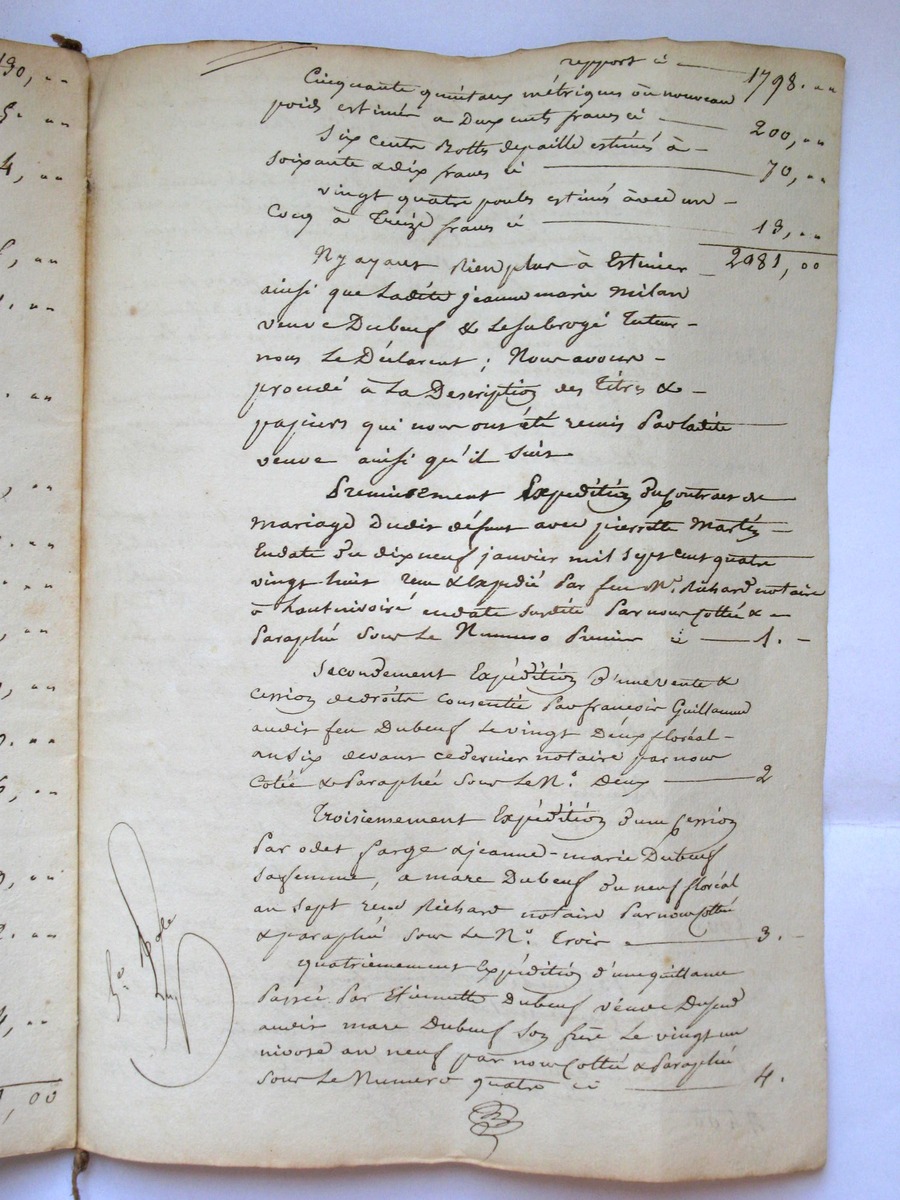 130, ..
5. ..
4, ..
rapport ci 1798. ..
Cinquante quintaux métriques ou nouveau
poids estimés a Deux cents francs ci 200, ..
Six cents Bottes depaille estimés à
soixante & dix francs ci 70, ..
vingt quatre poules estimés avec un
Cocq à Treize francs ci 13, ..
2981, 00
N'y ayant Rien plus à Estimer
ainsi que Ladite jeanne marie Milan
veuve Dubeuf & Lesubrogé Tuteur
nous Le Déclarent ; Nous avons
procédé à La Description des Titres &
papiers qui nous ont été remis Par Ladite
veuve ainsi qu'il suit
Premierement Expedition du Contrat de
mariage Dudit défunt avec pierrette Martin
Endate du dix neuf janvier mil sept cent quatre
vingt huit reçu & Expedié Par feu Me. Richard notaire
à hautrivoire endate susdite Par nous Cotté &
Paraphé Sous Le Numero Premier ci 1.
Secondement Expédition d'une vente &
cession de droits consentie Par francois Guillaume
audit feu Dubeuf Le vingt Deux floréal
an six devant ce dernier notaire par nous
Cotée & Paraphée Sous Le No. Deux 2
Troisiemement Expédition d'une Cession
Par odet farge & jeanne-marie Dubeuf
sa femme, a marc Dubeuf du neuf floréal
an sept reçu Richard notaire Par nous Cotté
& paraphé Sous Le No. Trois 3.
quatriemement Expédition d'une quittance
Passée Par Etiennette Dubeuf veuve
audit marc Dubeuf son frère Le vingt un
nivose an neuf par nous Cottée & Paraphé
sous Le Numero quatre ci 4.
1, 00